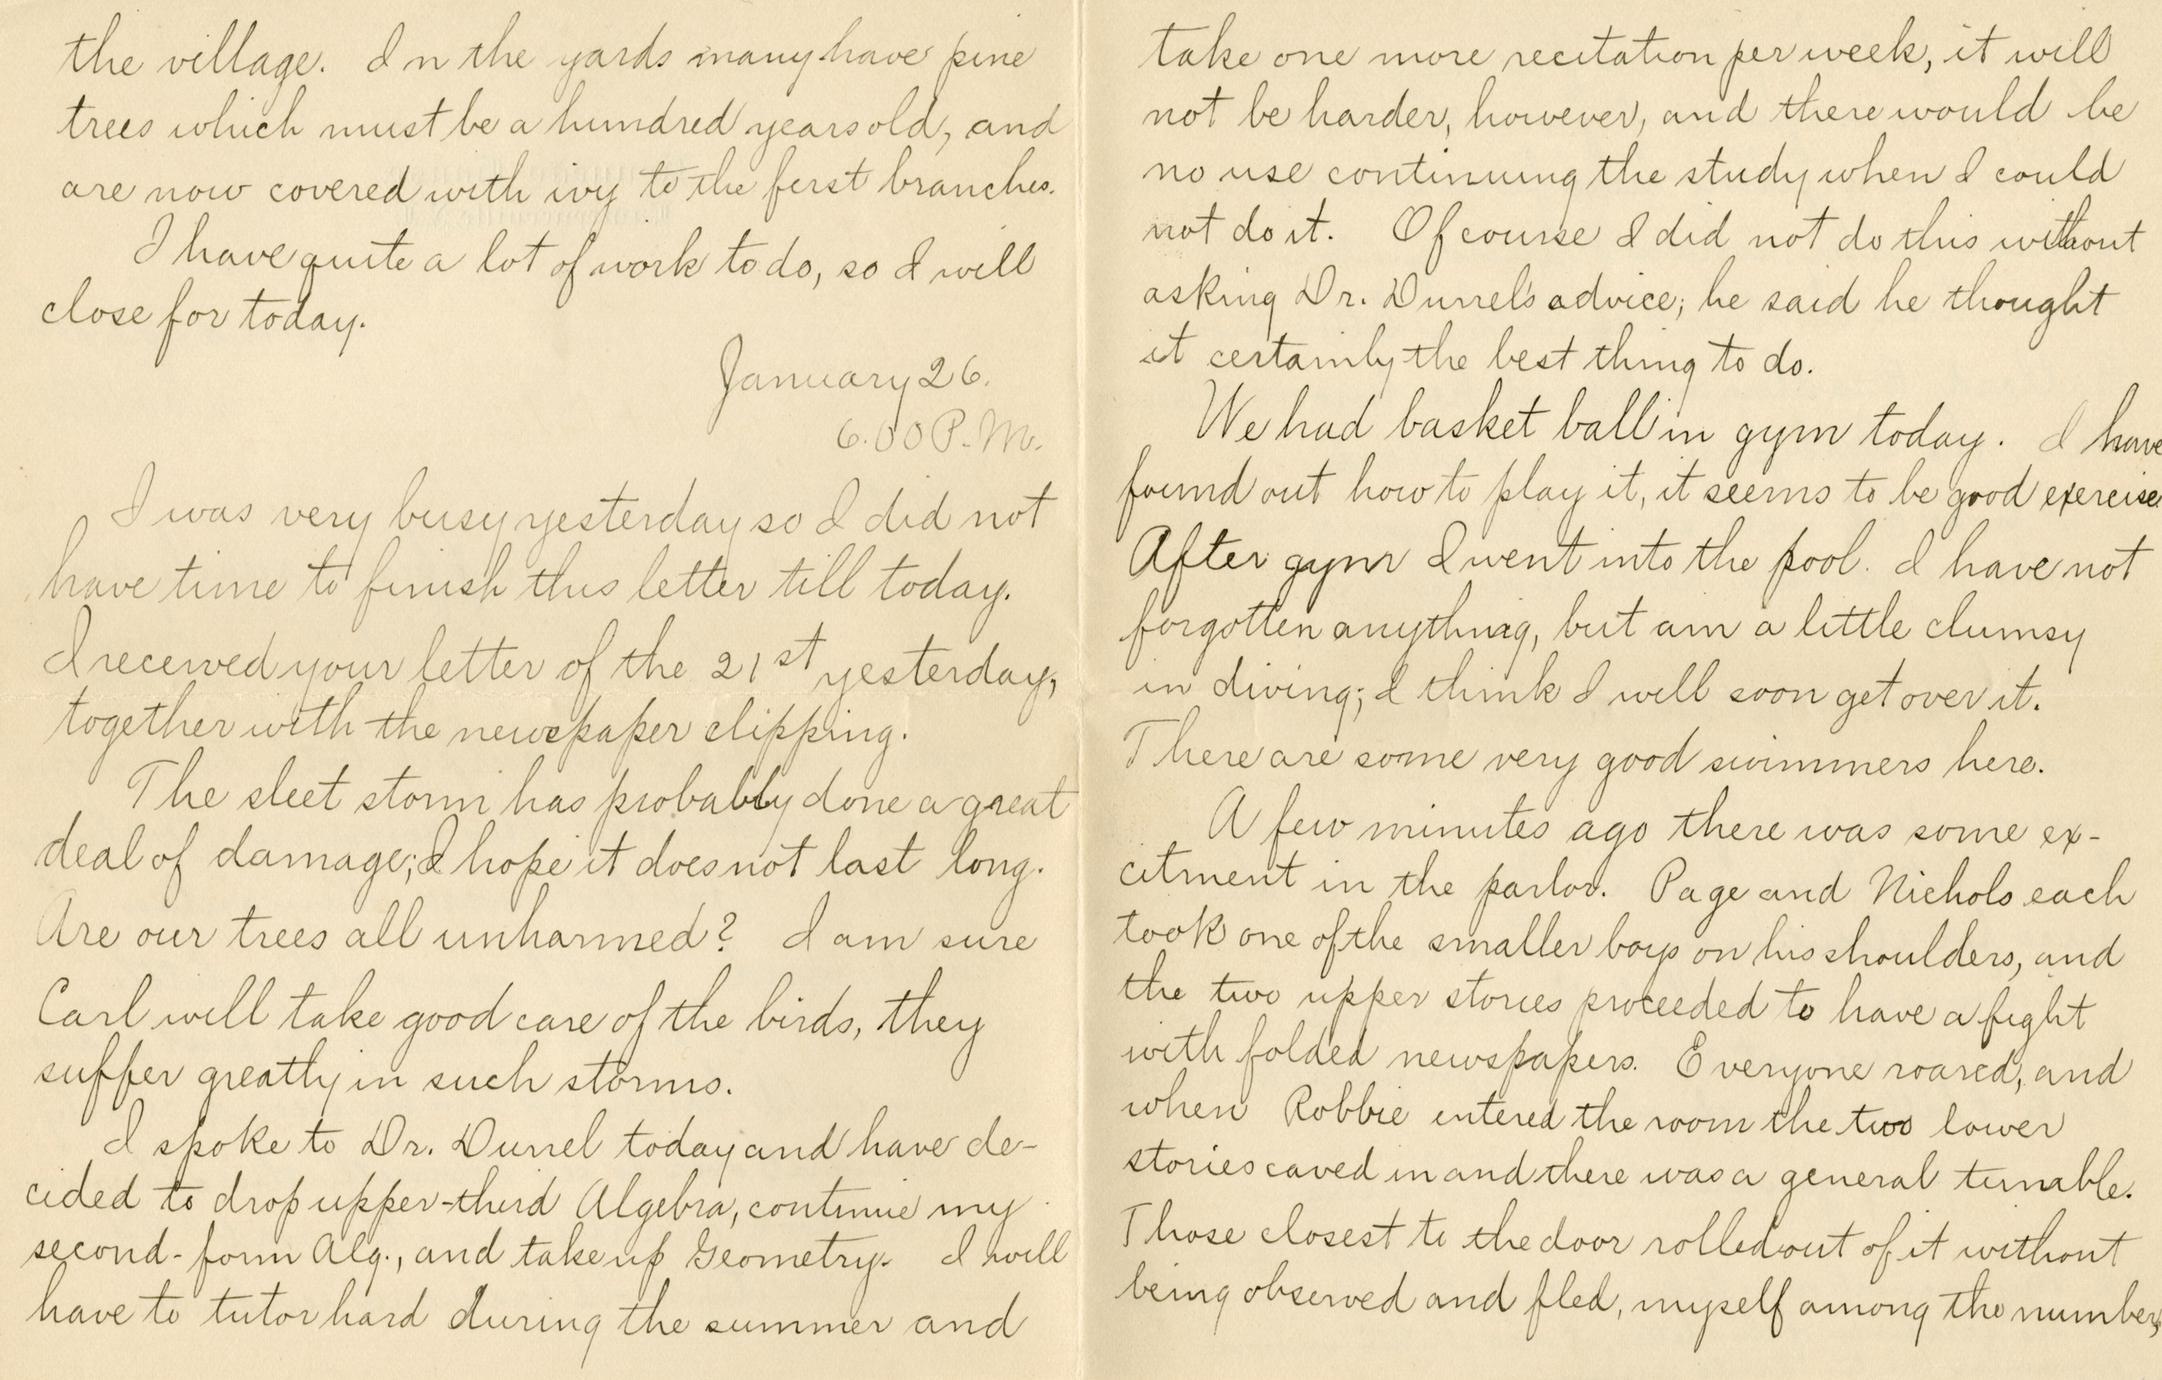 the village. In the yards many have pine
trees which must be a hundred years old, and
are now covered with ivy to the first branches.
I have quite a lot of work to do, so I will
close for today.
January 26.
6.00 P.M.
I was very busy yesterday so I did not
have time to finish this letter till today.
I received your letter of the 21st yesterday,
together with the newspaper clipping.
The sleet storm has probably done a great
deal of damage; I hope it does not last long.
Are our trees all unharmed? I am sure
Carl will take good care of the birds, they
suffer greatly in such storms.
I spoke to Dr. Durrel today and have de-
cided to drop upper-third Algebra, continue my
second-form Alg., and take up Geometry. I will
have to tutor hard during the summer and
take one more recitation per week, it will
not be harder, however, and there would be
no use continuing the study when I could
not do it. Of course I did not do this without
asking Dr. Durrel's advice; he said he thought
it certainly the best thing to do.
We had basket ball in gym today. I have
found out how to play it, it seems to be good exercise.
After gym I went into the pool. I have not
forgotten anything, but am a little clumsy
in diving; I think I will soon get over it.
There are some very good swimmers here.
A few minutes ago there was some ex-
citment in the parlor. Page and Nichols each
took one of the smaller boys on his shoulders, and
the two upper stories proceeded to have a fight
with folded newspapers. Everyone roared, and
when Robbie entered the room the two lower
stories caved in and there was a general tumble.
Those closest to the door rolled out of it without
being observed and fled, myself among the number,